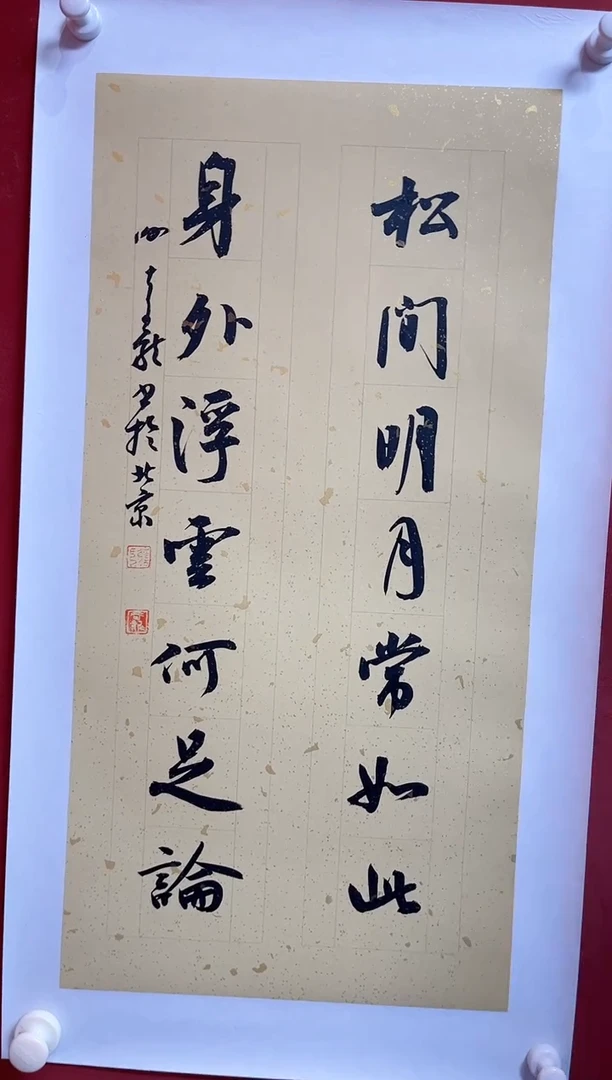 松间明月常如此
身外浮雲何足論
书于北京